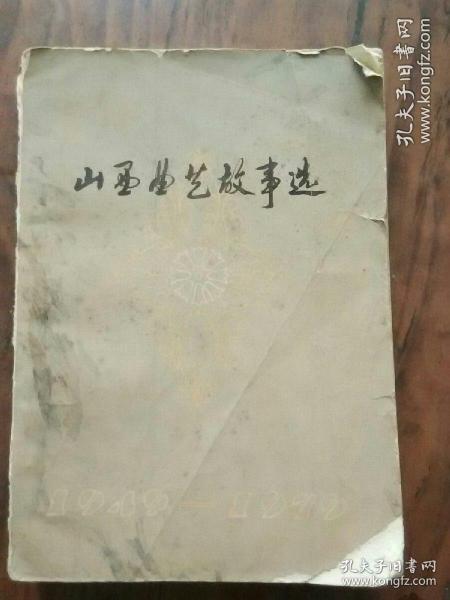 山西曲艺故事选
1949—1979
孔夫子旧书网
www.kongfz.com
孔夫子旧书网
www.kongfz.com